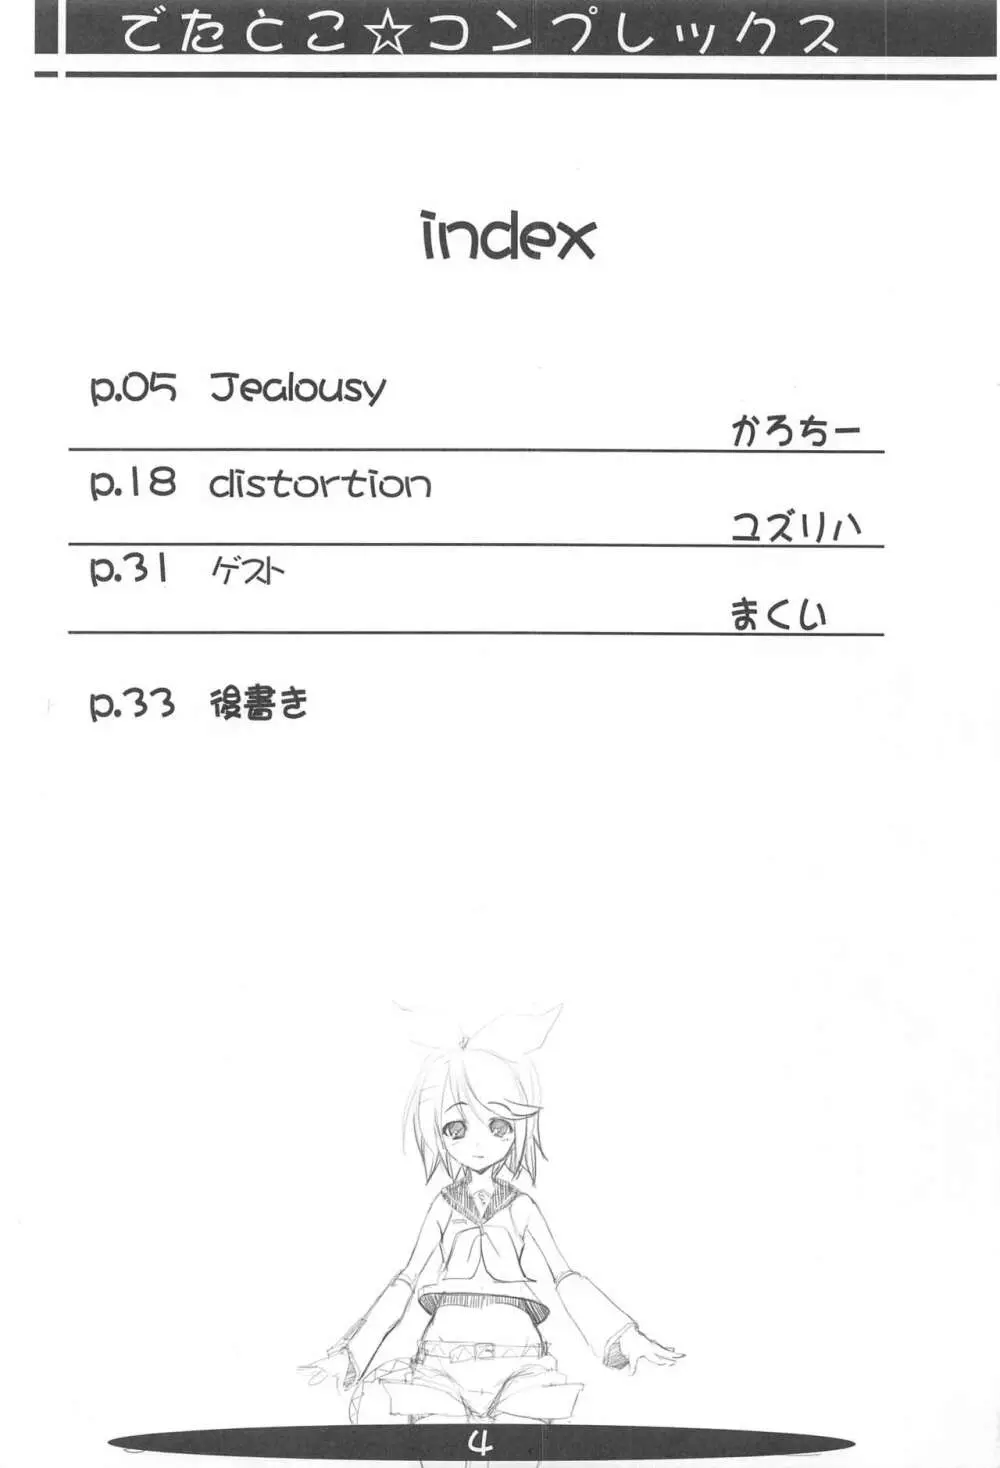 でたとこ☆コンプレックス
index
p.05 Jealousy
かろちー
p.18 distortion
ユズリハ
p.31 ゲスト
まくい
p.33 後書き
4